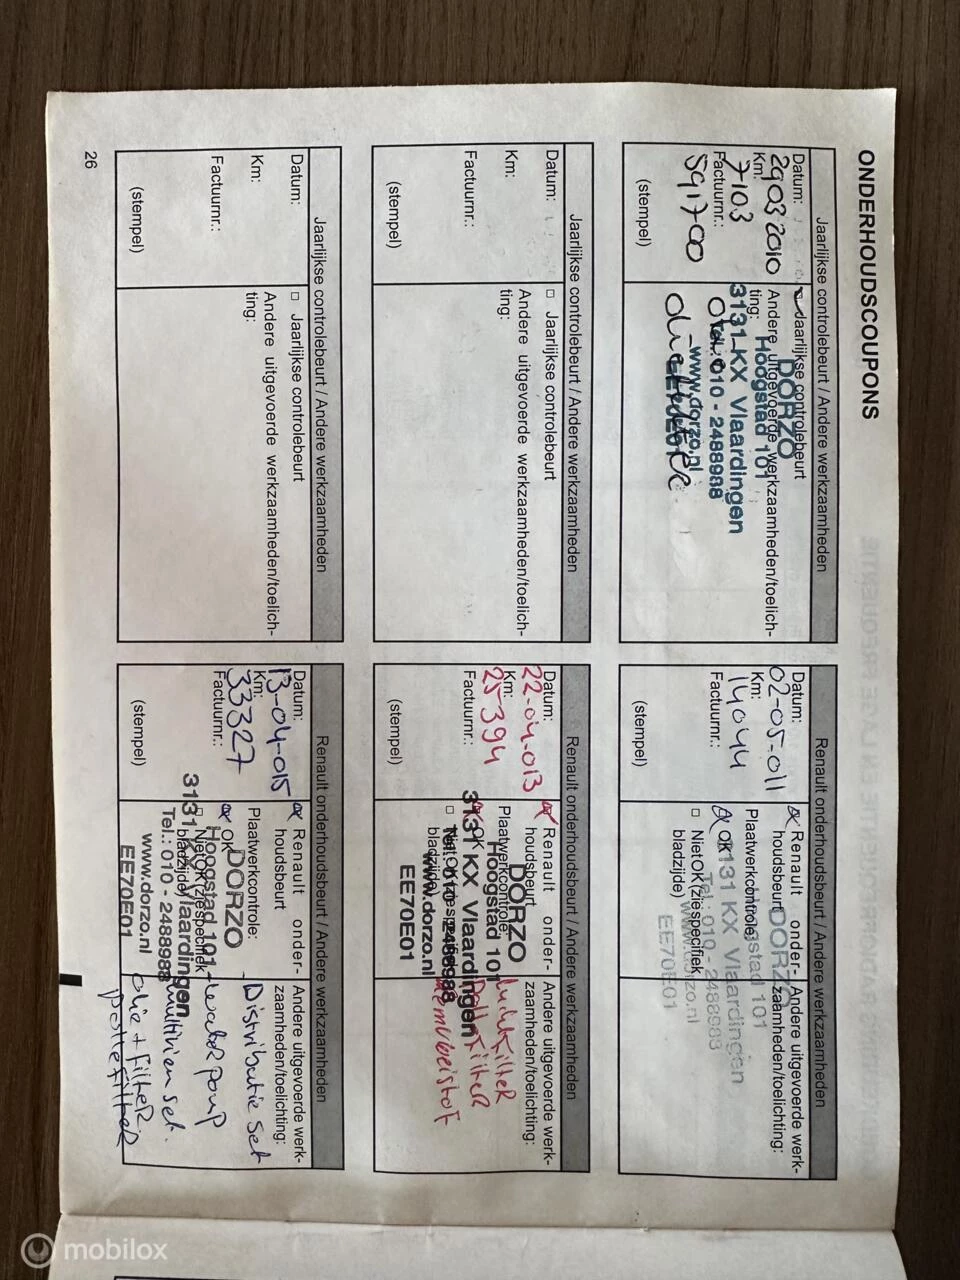 ONDERHOUDSCOUPONS
Jaarlijkse controlebeurt / Andere werkzaamheden
Datum:
29 03 2010
Km:
7103
Factuurnr.:
591700
(stempel)
Jaarlijkse controlebeurt
Andere uitgevoerde werkzaamheden/toelich-
ting:
DORZO
Hoogstad 101
3131 KX Vlaardingen
Tel.: 010 - 2488988
www.dorzo.nl
Renault onderhoudsbeurt / Andere werkzaamheden
Datum:
02-05-011
Km:
14044
Factuurnr.:
(stempel)
Renault onder-
houdsbeurt
Plaatwerkcontrole:
OK
Niet OK (zie specifiek
bladzijde)
DORZO
Hoogstad 101
3131 KX Vlaardingen
Tel.: 010 - 2488988
www.dorzo.nl
EE70E01
Andere uitgevoerde werk-
zaamheden/toelichting:
Jaarlijkse controlebeurt / Andere werkzaamheden
Datum:
Km:
Factuurnr.:
(stempel)
Jaarlijkse controlebeurt
Andere uitgevoerde werkzaamheden/toelich-
ting:
Renault onderhoudsbeurt / Andere werkzaamheden
Datum:
22-04-013
Km:
25-394
Factuurnr.:
(stempel)
Renault onder-
houdsbeurt
Plaatwerkcontrole:
OK
Niet OK (zie specifiek
bladzijde)
DORZO
Hoogstad 101
3131 KX Vlaardingen
Tel.: 010 - 2488988
www.dorzo.nl
EE70E01
Andere uitgevoerde werk-
zaamheden/toelichting:
luchtfilter
Pollenfilter
Remvloeistof
Jaarlijkse controlebeurt / Andere werkzaamheden
Datum:
Km:
Factuurnr.:
(stempel)
Jaarlijkse controlebeurt
Andere uitgevoerde werkzaamheden/toelich-
ting:
Renault onderhoudsbeurt / Andere werkzaamheden
Datum:
13-04-015
Km:
33327
Factuurnr.:
(stempel)
Renault onder-
houdsbeurt
Plaatwerkcontrole:
OK
Niet OK (zie specifiek
bladzijde)
DORZO
Hoogstad 101
3131 KX Vlaardingen
Tel.: 010 - 2488988
www.dorzo.nl
EE70E01
Andere uitgevoerde werk-
zaamheden/toelichting:
- Distributie set
multirien set.
olie + filter
26
mobilox